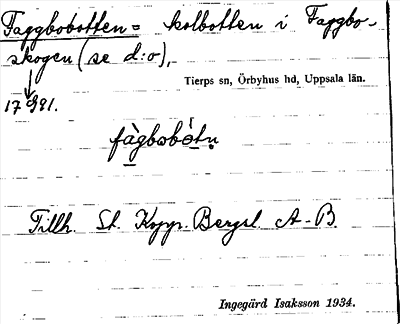 Faggbobotten = kolbotten i Faggbo-
skogen (se d:o),
Tierps sn, Örbyhus hd, Uppsala län.
17981.
fàgbobótn
Tillh. St. Kopp. Bergsl. A-B
Ingegärd Isaksson 1934.